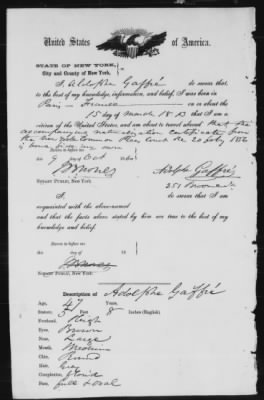 United States of America.
STATE OF NEW YORK,
City and County of New York,
I, Adolphe Gaffré do swear that
to the best of my knowledge, information, and belief, I was born in
Paris — France on or about the
15 day of March 1813 that I am a
citizen of the United States, and am about to travel abroad that the
accompanying naturalization certificate from
the Common Pleas Court
is mine, being my own
Sworn to before me
9 Oct 1860
NOTARY PUBLIC, New York.
Adolphe Gaffré
251 Broome St
I do swear that I am
acquainted with the above-named
and that the facts above stated by him are true to the best of my
knowledge and belief.
Sworn to before me
NOTARY PUBLIC, New York.
Description of Adolphe Gaffré
Age, 47 Years
Stature, 5 Feet 8 Inches (English)
Forehead, High
Eyes, Brown
Nose, Large
Mouth, Medium
Chin, Round
Hair, Grey
Complexion, Florid
Face, full & oval